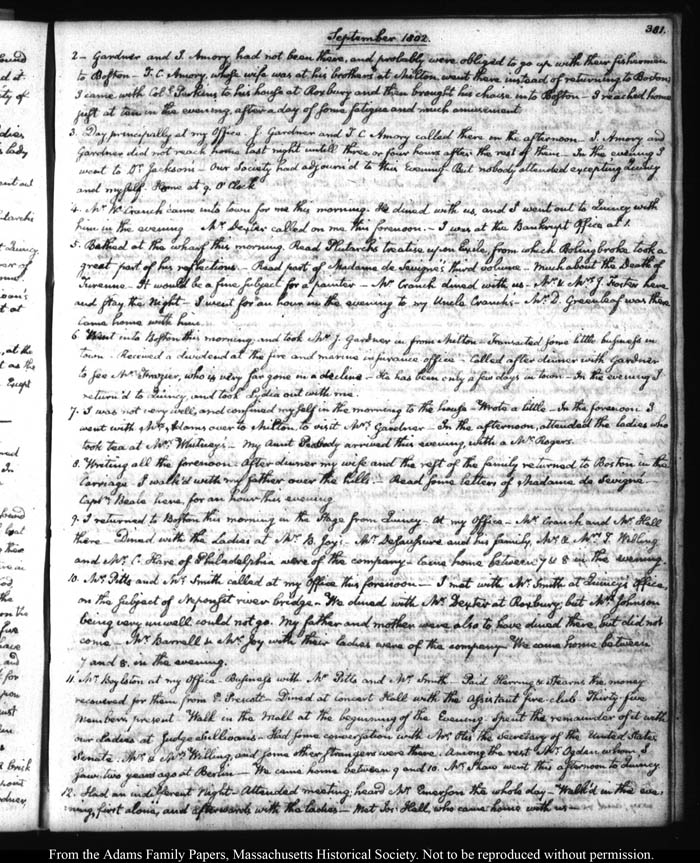 September 1802.
381.
2- Gardner and J. Amory had not been there, and probably were obliged to go up with their fishermen
to Boston - T. C. Amory, whose wife was at his brothers at Milton, went there instead of returning to Boston.
I came with Coll. Perkins to his house at Roxbury and then brought his chaise into Boston - I reached home
just at ten in the evening, after a day of some fatigue and much amusement.
3. Day principally at my Office. J. Gardner and T. C. Amory called there in the afternoon - J. Amory and
Gardner did not reach home last night untill three or four hours after the rest of them - In the evening I
went to Dr. Jackson's - Our Society had adjourn'd to this Evening - But nobody attended excepting Quincy
and myself. Home at 9. O'Clock
4. Mr. W. Cranch came into town for me this morning. He dined with us, and I went out to Quincy with
him in the evening Mr. Dexter called on me this forenoon - I was at the Bankrupt Office at 1.
5. Bathed at the wharf this morning. Read Plutarch's treatise upon Exile, from which Bolingbroke took a
great part of his reflections - Read part of Madame de Sevigné's third volume - Much about the Death of
Turenne - It would be a fine subject for a painter - Mr. Cranch dined with us. Mr. & Mrs. J. Foster here
and stay the Night - I went for an hour in the evening to my Uncle Cranch's - Mr. D. Greenleaf was there
Came home with him.
6 Went into Boston this morning, and took Mr. J. Gardner in from Milton - Transacted some little business in
town - Received a dividend at the fire and marine insurance office - Called after dinner with Gardner
to see Mr. Frazier, who is very far gone in a decline - He has been only a few days in town - In the evening I
return'd to Quincy, and took Lydia out with me.
7. I was not very well, and confined myself in the morning to the house - Wrote a little - In the forenoon I
went with Mrs. Adams over to Milton, to visit Mrs. Gardner - In the afternoon, attended the ladies who
took tea at Mrs. Whitney's - My Aunt Peabody arrived this evening, with a Mr. Rogers.
8. Writing all the forenoon. After dinner my wife and the rest of the family returned to Boston in the
Carriage I walk'd with my father over the hills - Read some letters of Madame de Sevigné -
Captn. Beale here, for an hour this evening
9. I returned to Boston this morning in the Stage from Quincy - At my Office - Mr. Cranch and Mr. Hall
there Dined with the Ladies at Mr. B. Joy's - Mr. Desaussure and his family, Mr. & Mrs. T. Willing
and Mr. C. Hare of Philadelphia were of the company - Came home between 7 & 8 in the evening.
10. Mr. Pitts and Mr. Smith called at my Office this forenoon - I met with Mr. Smith at Quincy's Office,
on the subject of Neponset river bridge - We dined with Mr. Dexter at Roxbury; but Mrs. Johnson
being very unwell could not go. My father and mother were also to have dined there, but did not
come - Mr. Barrell & Mr. Joy with their ladies were of the company We came home between
7 and 8. in the evening.
11. Mr. Boylston at my Office - Business with Mr. Pitts and Mr. Smith - Paid Herring & Stearns the money
recovered for them from P. Prescott - Dined at Concert Hall with the Assistant fire-club Thirty five
Members present Walk in the Mall at the beginning of the Evening. Spent the remainder of it with
our Ladies at Judge Sullivan's - Had some conversation with Mr. Otis the Secretary of the United States
Senate. Mr. & Mrs. Willing, and some other strangers were there. Among the rest a Mr. Ogden whom I
saw two years ago at Berlin - We came home between 9 and 10. Mr. Shaw went this afternoon to Quincy
12. Had an indifferent night - Attended meeting; heard Mr. Emerson the whole day - Walk'd in the eve-
ning, first alone, and afterwards with the ladies - Met Jos: Hall, who came home with us -
From the Adams Family Papers, Massachusetts Historical Society. Not to be reproduced without permission.